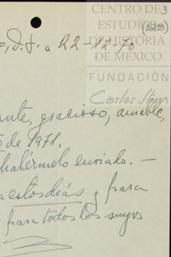 CENTRO DE
ESTUDIOS
DE HISTORIA
DE MEXICO
FUNDACIÓN
Carlos Slim
D.F. a 22-12-70
gracioso, amable,
de 1971.
habérmelo enviado. —
estos días y para
para todos los suyos